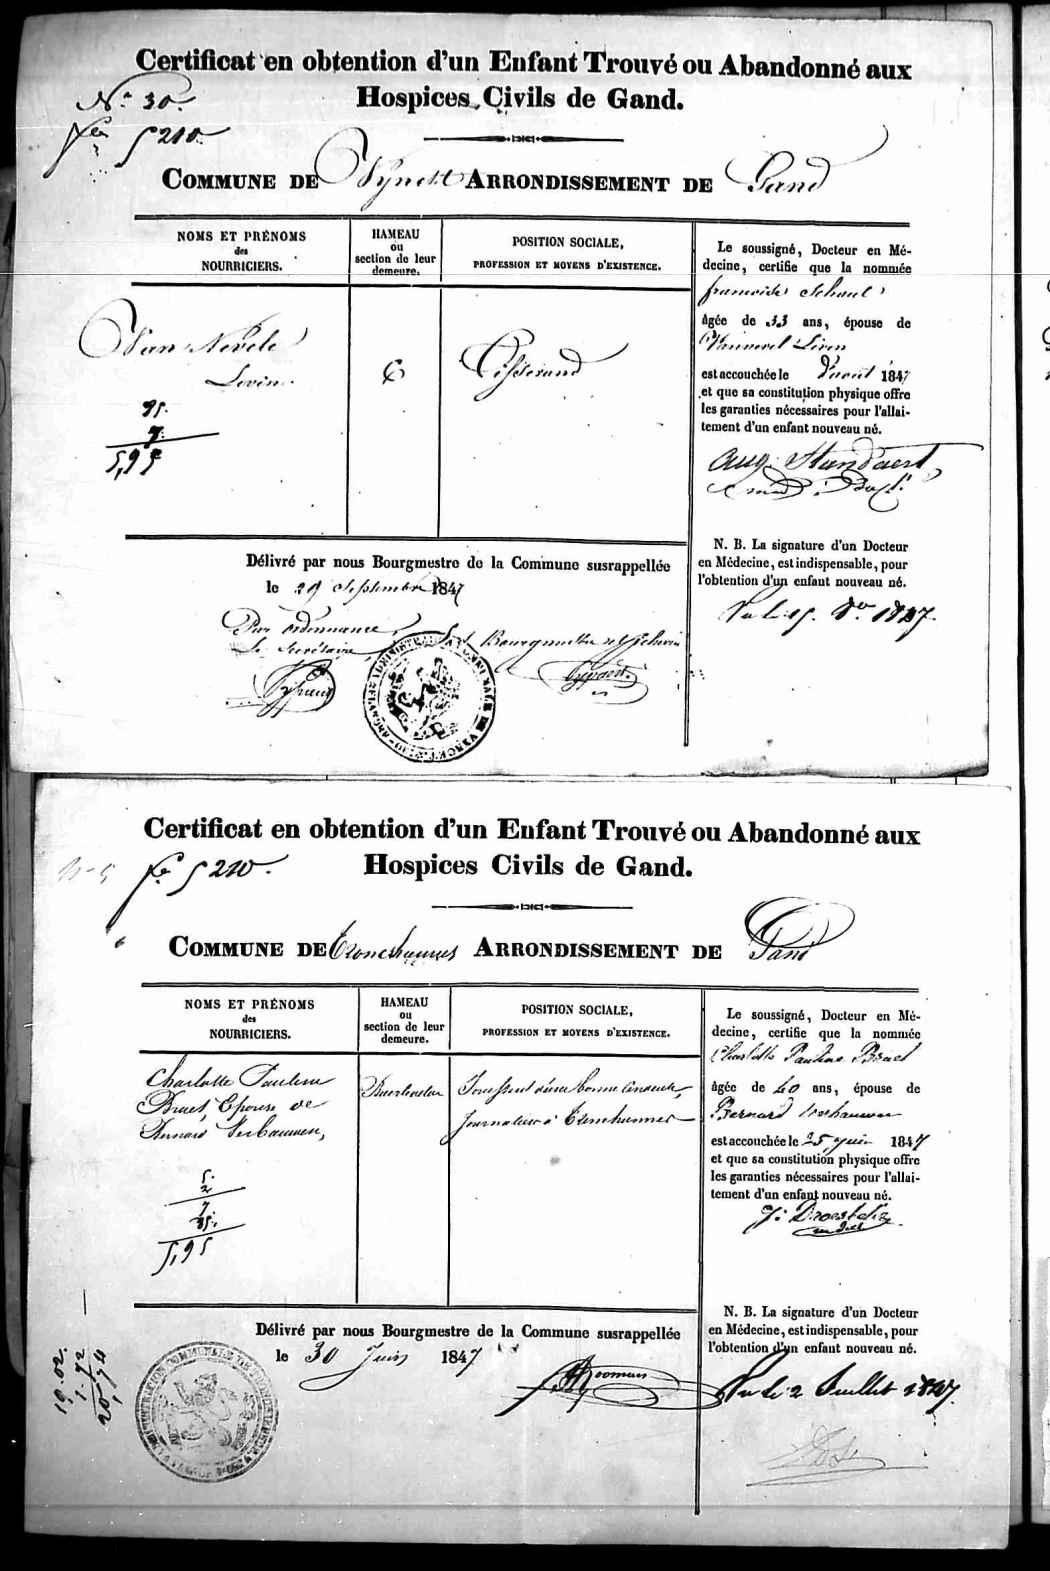 Certificat en obtention d'un Enfant Trouvé ou Abandonné aux
Hospices Civils de Gand.
N° 30.
5210.
COMMUNE DE Vynckt ARRONDISSEMENT DE Gand
NOMS ET PRÉNOMS
des
NOURRICIERS.
HAMEAU
ou
section de leur
demeure.
POSITION SOCIALE,
PROFESSION ET MOYENS D'EXISTENCE.
Van Nevele
Levin
95.
7.
5,95
6
Tisserand
Le soussigné, Docteur en Mé-
decine, certifie que la nommée
françoise Schout
âgée de 33 ans, épouse de
Livin
est accouchée le d'août 1847
et que sa constitution physique offre
les garanties nécessaires pour l'allai-
tement d'un enfant nouveau né.
Aug. Standaert
N. B. La signature d'un Docteur
en Médecine, est indispensable, pour
l'obtention d'un enfant nouveau né.
1847.
Délivré par nous Bourgmestre de la Commune susrappellée
le 29 Septembre 1847
Par ordonnance
Le Secrétaire
Bourgmestre
Certificat en obtention d'un Enfant Trouvé ou Abandonné aux
Hospices Civils de Gand.
N° 5
5210.
COMMUNE DE Tronchiennes ARRONDISSEMENT DE Gand
NOMS ET PRÉNOMS
des
NOURRICIERS.
HAMEAU
ou
section de leur
demeure.
POSITION SOCIALE,
PROFESSION ET MOYENS D'EXISTENCE.
Charlotte Pauline
Bruel Epouse de
Bernard Verhauwen,
Baerlevelde
Jouissant d'une bonne conduite,
Journalier à Tronchiennes
5.
2
7.
95.
5,95
Le soussigné, Docteur en Mé-
decine, certifie que la nommée
Charlotte Pauline Bruel
âgée de 40 ans, épouse de
Bernard Verhauwen
est accouchée le 25 juin 1847
et que sa constitution physique offre
les garanties nécessaires pour l'allai-
tement d'un enfant nouveau né.
N. B. La signature d'un Docteur
en Médecine, est indispensable, pour
l'obtention d'un enfant nouveau né.
Vu le 2 Juillet 1847.
Délivré par nous Bourgmestre de la Commune susrappellée
le 30 Juin 1847
19,02.
1.72
20,74